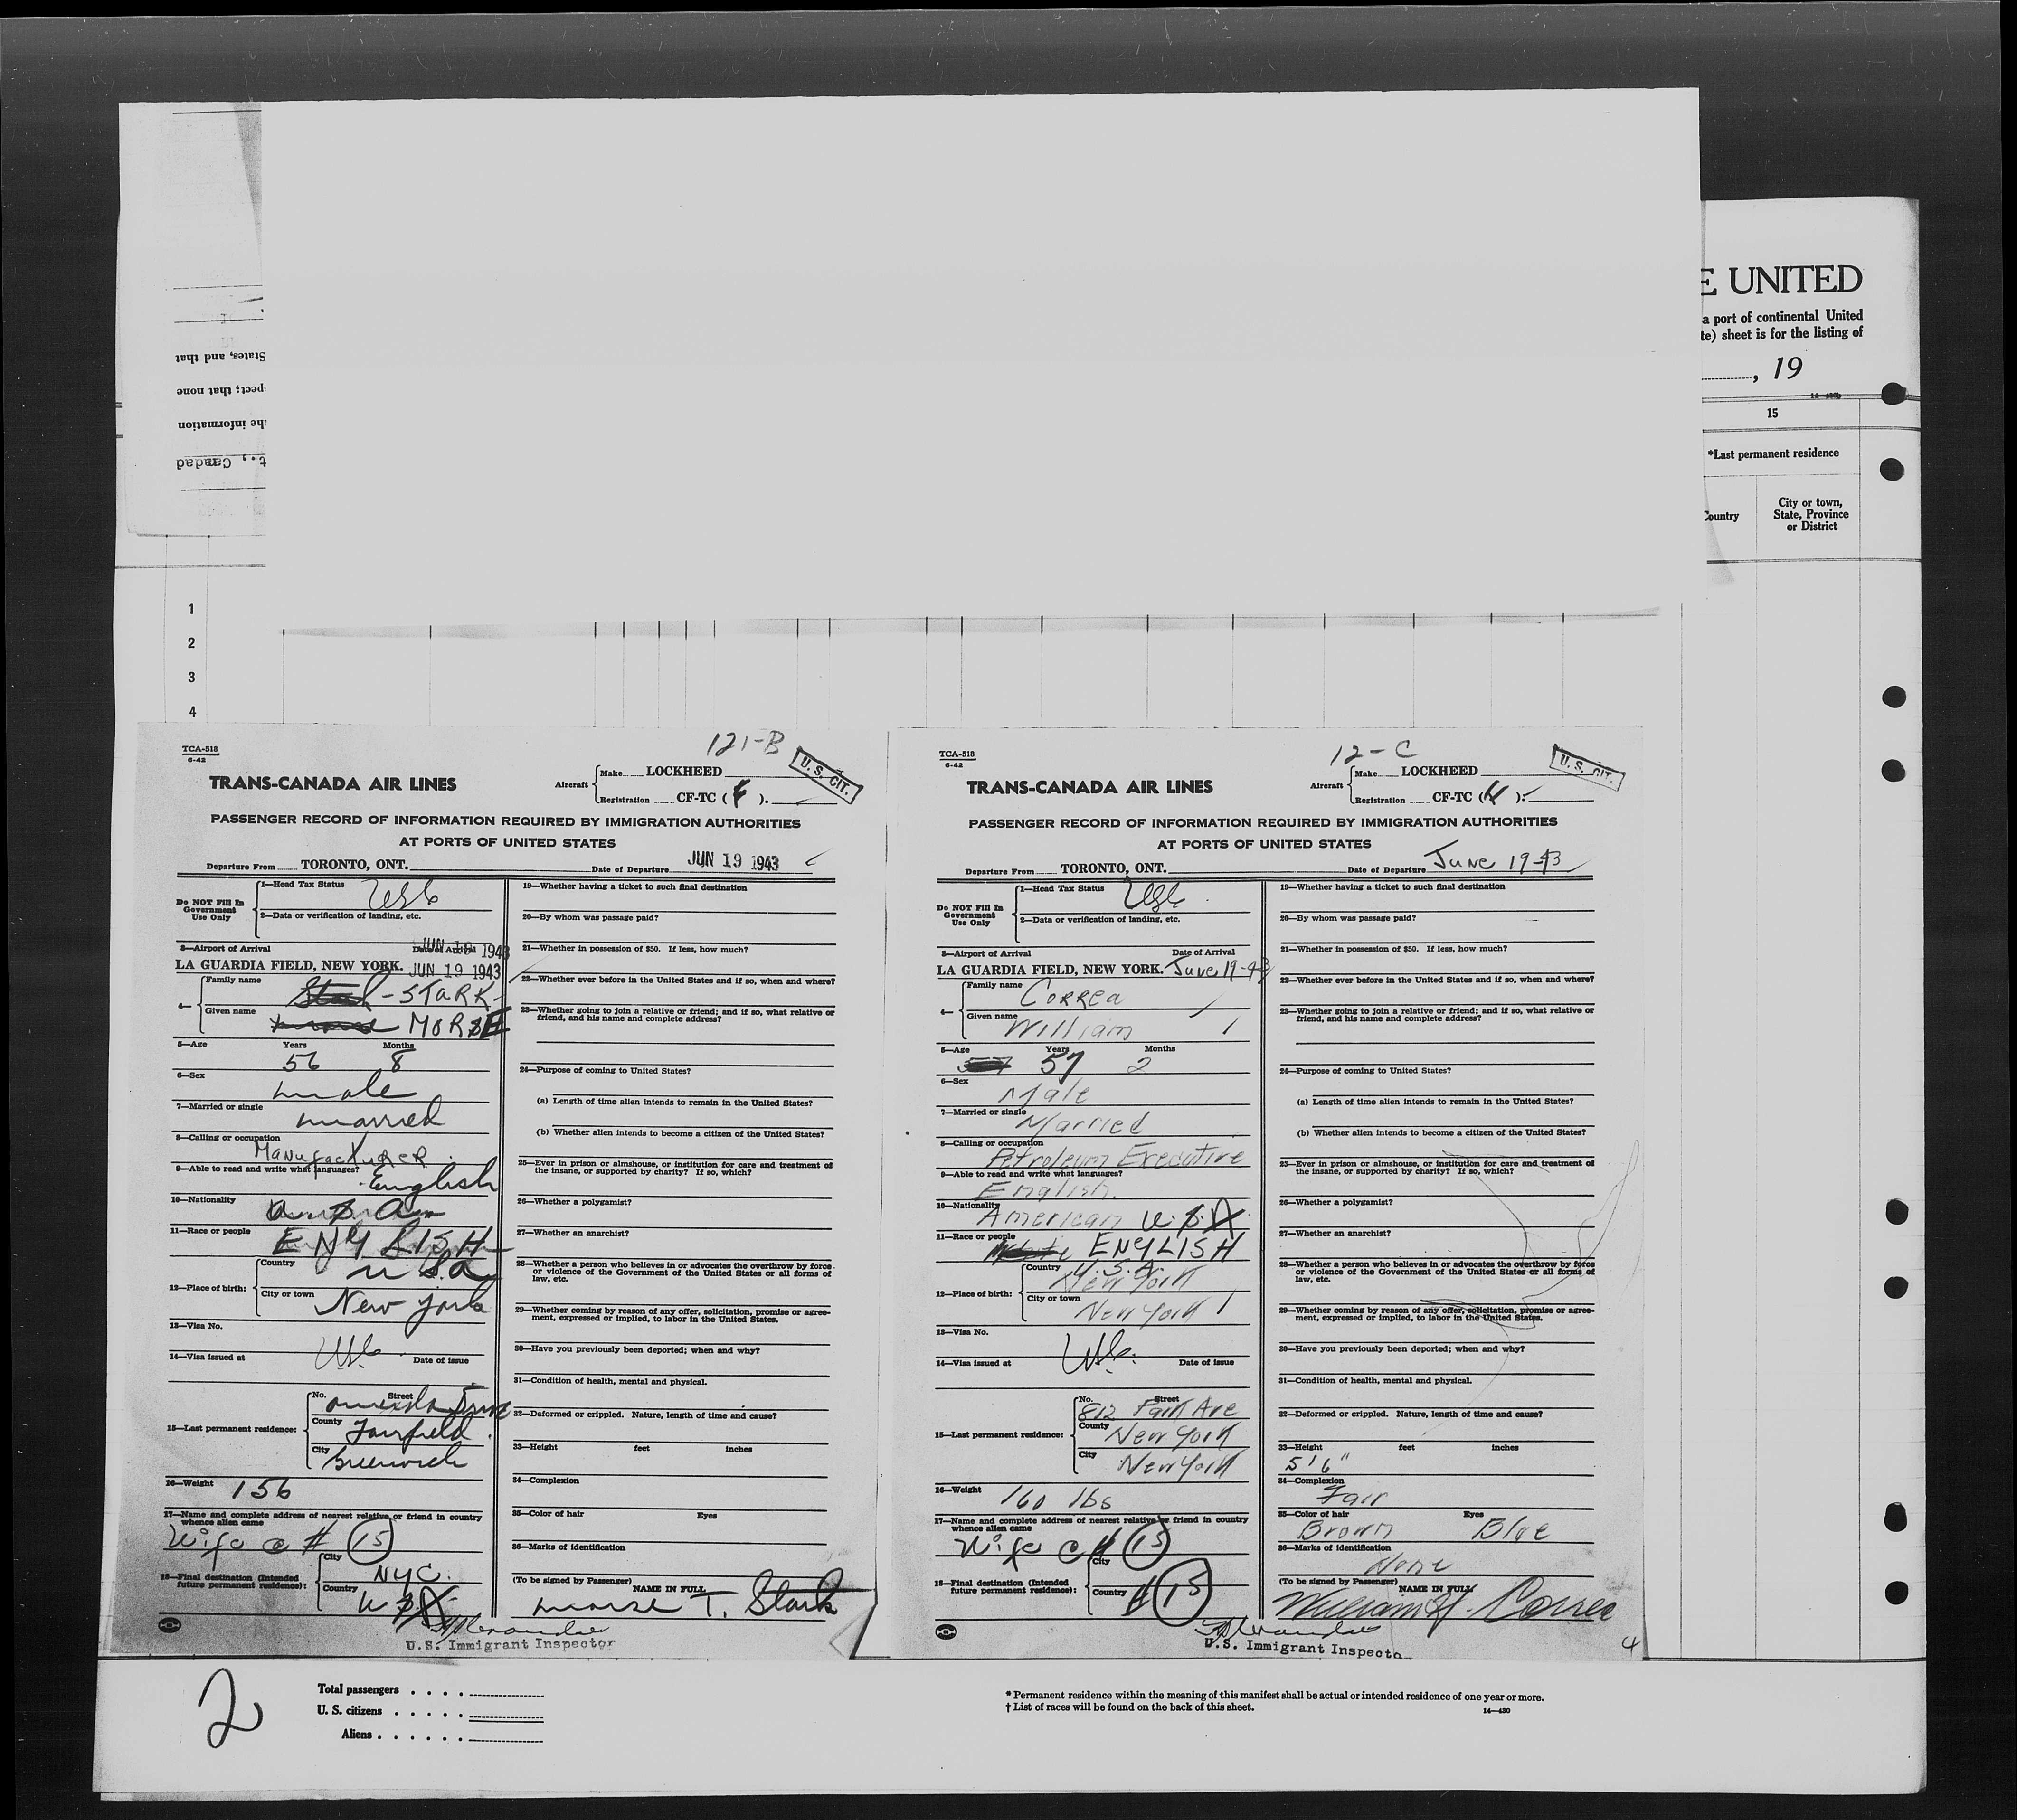 E UNITED
a port of continental United
te) sheet is for the listing of
, 19
14—430b
15
*Last permanent residence
Country
City or town,
State, Province
or District
States, and that
pect; that none
he information
t., Canada
1
2
3
4
TCA-518
6-42
121-B
U. S. CIT.
TRANS-CANADA AIR LINES
Aircraft
Make LOCKHEED
Registration CF-TC ( F ).
PASSENGER RECORD OF INFORMATION REQUIRED BY IMMIGRATION AUTHORITIES
AT PORTS OF UNITED STATES
Departure From TORONTO, ONT.
Date of Departure JUN 19 1943
Do NOT Fill In
Government
Use Only
1—Head Tax Status USC
2—Data or verification of landing, etc.
3—Airport of Arrival
Date of Arrival JUN 19 1943
LA GUARDIA FIELD, NEW YORK. JUN 19 1943
4—
Family name - STARK -
Given name MORSE
5—Age Years Months
56 8
6—Sex
male
7—Married or single
married
8—Calling or occupation
Manufacturer
9—Able to read and write what languages?
English
10—Nationality
U.S.A.
11—Race or people ENGLISH
12—Place of birth:
Country
U.S.A.
City or town
New York
13—Visa No.
USC
14—Visa issued at Date of issue
15—Last permanent residence:
No. Street
County
Fairfield
City
Greenwich
16—Weight 156
17—Name and complete address of nearest relative or friend in country
whence alien came
Wife @ # 15
18—Final destination (Intended
future permanent residence):
City
NYC.
Country
USA
19—Whether having a ticket to such final destination
20—By whom was passage paid?
21—Whether in possession of $50. If less, how much?
22—Whether ever before in the United States and if so, when and where?
23—Whether going to join a relative or friend; and if so, what relative or
friend, and his name and complete address?
24—Purpose of coming to United States?
(a) Length of time alien intends to remain in the United States?
(b) Whether alien intends to become a citizen of the United States?
25—Ever in prison or almshouse, or institution for care and treatment of
the insane, or supported by charity? If so, which?
26—Whether a polygamist?
27—Whether an anarchist?
28—Whether a person who believes in or advocates the overthrow by force
or violence of the Government of the United States or all forms of
law, etc.
29—Whether coming by reason of any offer, solicitation, promise or agree-
ment, expressed or implied, to labor in the United States.
30—Have you previously been deported; when and why?
31—Condition of health, mental and physical.
32—Deformed or crippled. Nature, length of time and cause?
33—Height feet inches
34—Complexion
35—Color of hair Eyes
36—Marks of identification
(To be signed by Passenger) NAME IN FULL
Morse T. Stark
U.S. Immigrant Inspector
TCA-518
6-42
12-C
U. S. CIT.
TRANS-CANADA AIR LINES
Aircraft
Make LOCKHEED
Registration CF-TC (H ).
PASSENGER RECORD OF INFORMATION REQUIRED BY IMMIGRATION AUTHORITIES
AT PORTS OF UNITED STATES
Departure From TORONTO, ONT.
Date of Departure June 19-43
Do NOT Fill In
Government
Use Only
1—Head Tax Status USC
2—Data or verification of landing, etc.
3—Airport of Arrival Date of Arrival
LA GUARDIA FIELD, NEW YORK. June 19-43
4—
Family name
Correa
Given name
William
5—Age Years Months
57 2
6—Sex
Male
7—Married or single
Married
8—Calling or occupation
Petroleum Executive
9—Able to read and write what languages?
English.
10—Nationality
American U.S.A.
11—Race or people
ENGLISH
12—Place of birth:
Country U.S.A.
New York
City or town
New York
13—Visa No.
USC
14—Visa issued at Date of issue
15—Last permanent residence:
No. Street
812 Park Ave
County
New York
City
New York
16—Weight
160 lbs
17—Name and complete address of nearest relative or friend in country
whence alien came
Wife @ # 15
18—Final destination (Intended
future permanent residence):
City
Country # 15
19—Whether having a ticket to such final destination
20—By whom was passage paid?
21—Whether in possession of $50. If less, how much?
22—Whether ever before in the United States and if so, when and where?
23—Whether going to join a relative or friend; and if so, what relative or
friend, and his name and complete address?
24—Purpose of coming to United States?
(a) Length of time alien intends to remain in the United States?
(b) Whether alien intends to become a citizen of the United States?
25—Ever in prison or almshouse, or institution for care and treatment of
the insane, or supported by charity? If so, which?
26—Whether a polygamist?
27—Whether an anarchist?
28—Whether a person who believes in or advocates the overthrow by force
or violence of the Government of the United States or all forms of
law, etc.
29—Whether coming by reason of any offer, solicitation, promise or agree-
ment, expressed or implied, to labor in the United States.
30—Have you previously been deported; when and why?
31—Condition of health, mental and physical.
32—Deformed or crippled. Nature, length of time and cause?
33—Height feet inches
5'6"
34—Complexion
Fair
35—Color of hair Eyes
Brown Blue
36—Marks of identification
None
(To be signed by Passenger) NAME IN FULL
William H. Correa
U.S. Immigrant Inspecto
4
2
Total passengers
U. S. citizens
Aliens
* Permanent residence within the meaning of this manifest shall be actual or intended residence of one year or more.
† List of races will be found on the back of this sheet.
14—430